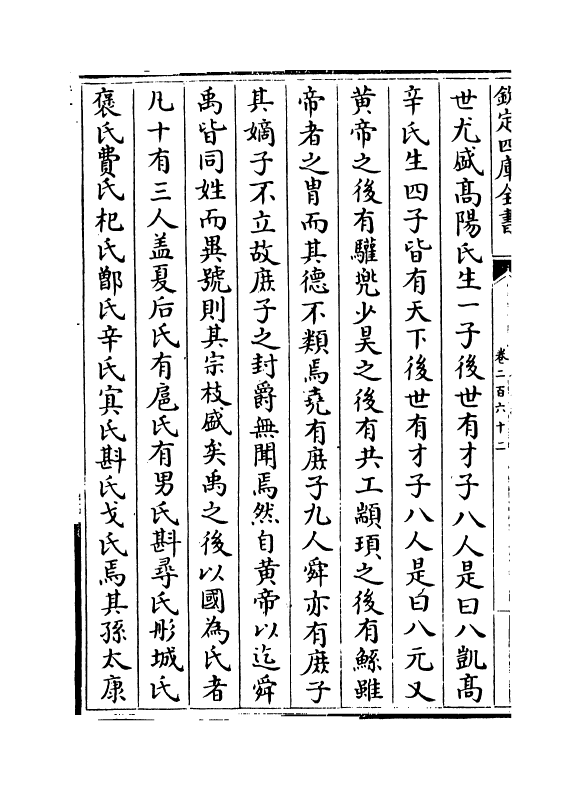 欽定四庫全書
卷二百六十二
世尤盛髙陽氏生一子後世有才子八人是曰八凱髙
辛氏生四子皆有天下後世有才子八人是白八元又
黄帝之後有驩兠少昊之後有共工顓頊之後有鯀雖
帝者之胄而其德不類焉堯有庶子九人舜亦有庶子
其嫡子不立故庶子之封爵無聞焉然自黄帝以迄舜
禹皆同姓而異號則其宗枝盛矣禹之後以國為氏者
凡十有三人盖夏后氏有扈氏有男氏斟尋氏彤城氏
襃氏費氏杞氏鄫氏辛氏寘氏斟氏戈氏焉其孫太康